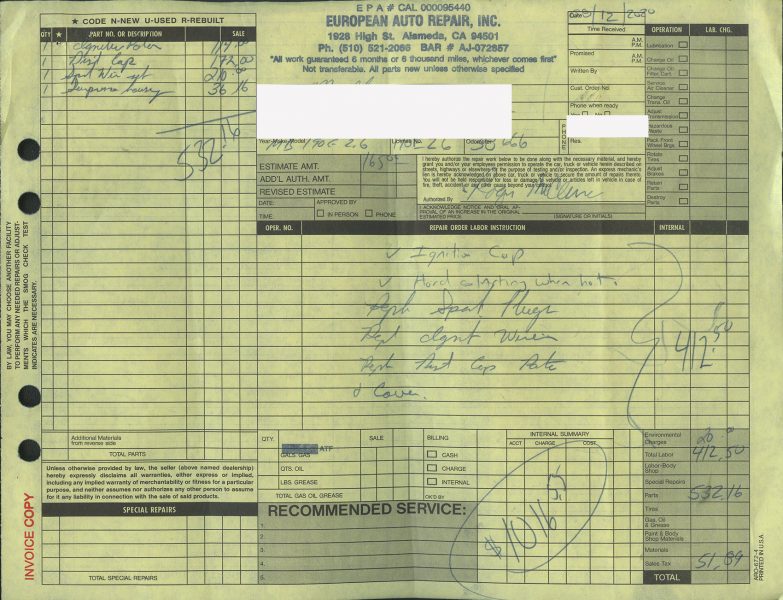 E P A # CAL 000095440
EUROPEAN AUTO REPAIR, INC.
1928 High St. Alameda, CA 94501
Ph. (510) 521-2066 BAR # AJ-072857
"All work guaranteed 6 months or 6 thousand miles, whichever comes first"
Not transferable. All parts new unless otherwise specified
★ CODE N-NEW U-USED R-REBUILT
QTY ★ PART NO. OR DESCRIPTION SALE
1
1 Dist Cap 172.00
1 20.00
1 36 16
532.16
Date 12 2020
Time Received A.M. P.M.
Promised A.M. P.M.
Written By
Cust. Order No.
Phone when ready
Yes No
PHONE
Res.
OPERATION LAB. CHG.
Lubrication
Change Oil
Change Oil Filter Cart.
Service Air Cleaner
Change Trans. Oil
Adjust Transmission
Hazardous Waste
Pack Front Wheel Brgs.
Rotate Tires
Adjust Brakes
Retain Parts
Destroy Parts
Year-Make-Model MB 190E 2.6 License No. 190E26 Odometer
ESTIMATE AMT.
ADD'L AUTH. AMT.
REVISED ESTIMATE
DATE: APPROVED BY
TIME: IN PERSON PHONE
I hereby authorize the repair work below to be done along with the necessary material, and hereby
grant you and/or your employees permission to operate the car, truck or vehicle herein described on
streets, highways or elsewhere for the purpose of testing and/or inspection. An express mechanic's
lien is hereby acknowledged on above car, truck or vehicle to secure the amount of repairs thereto.
You will not be held responsible for loss or damage to vehicle or articles left in vehicle in case of
fire, theft, accident or any other cause beyond your control.
Authorized By
I ACKNOWLEDGE NOTICE AND ORAL AP-
PROVAL OF AN INCREASE IN THE ORIGINAL
ESTIMATED PRICE. (SIGNATURE OR INITIALS)
OPER. NO. REPAIR ORDER LABOR INSTRUCTION INTERNAL
✓ Ignition Cap
✓ Hard starting when hot.
Rplc Spark Plugs
Dist Cap
& Cover.
412.50
BY LAW, YOU MAY CHOOSE ANOTHER FACILITY
TO PERFORM ANY NEEDED REPAIRS OR ADJUST-
MENTS WHICH THE SMOG CHECK TEST
INDICATES ARE NECESSARY.
INVOICE COPY
Additional Materials
from reverse side
TOTAL PARTS
Unless otherwise provided by law, the seller (above named dealership)
hereby expressly disclaims all warranties, either express or implied,
including any implied warranty of merchantability or fitness for a particular
purpose, and neither assumes nor authorizes any other person to assume
for it any liability in connection with the sale of said products.
SPECIAL REPAIRS
TOTAL SPECIAL REPAIRS
QTY. SALE
ATF
GALS. GAS
QTS. OIL
LBS GREASE
TOTAL GAS OIL GREASE
BILLING
CASH
CHARGE
INTERNAL
OK'D BY
INTERNAL SUMMARY
ACCT CHARGE COST
RECOMMENDED SERVICE:
1.
2.
3.
4.
5.
$1016.55
Environmental Charges 20.00
Total Labor 412.50
Labor-Body Shop
Special Repairs
Parts 532.16
Tires
Gas, Oil & Grease
Paint & Body Shop Materials
Materials
Sales Tax 51.89
TOTAL
ARO-673-4
PRINTED IN U.S.A.